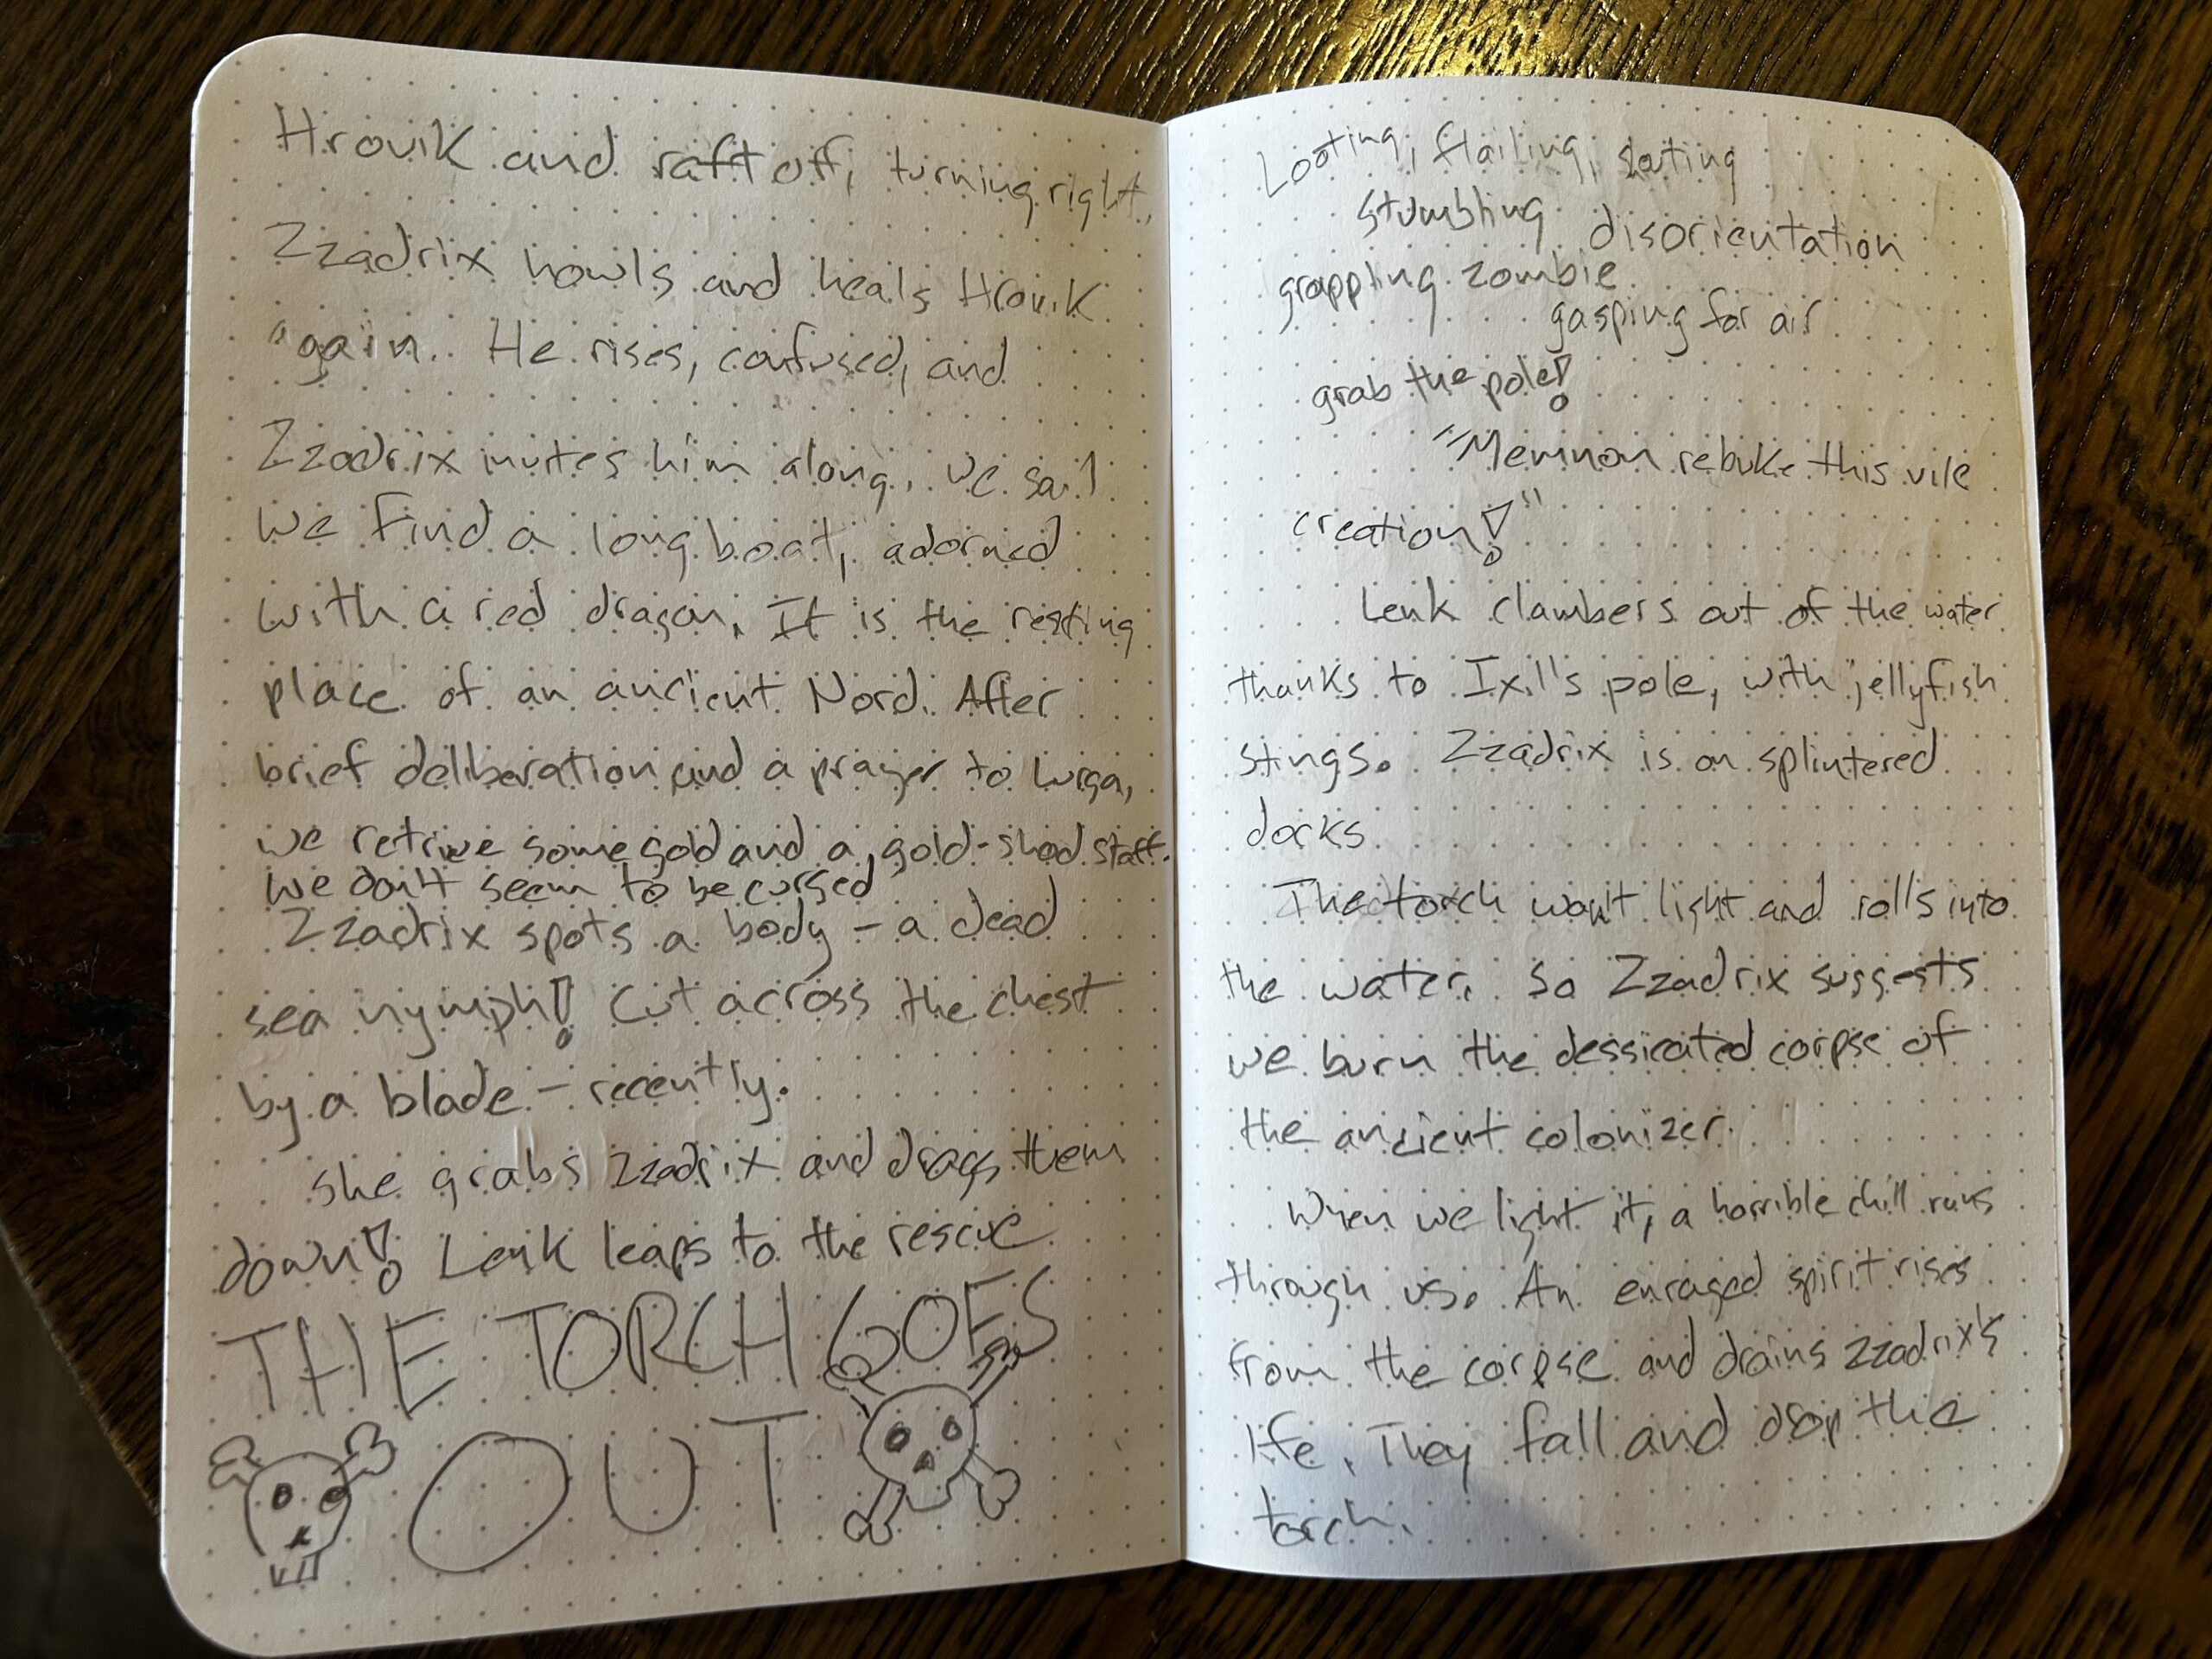 Hrovik and raft off, turning right.
Zzadrix howls and heals Hrovik
again. He rises, confused, and
Zzadrix invites him along, we sail
We find a longboat, adorned
with a red dragon. It is the resting
place of an ancient Nord. After
brief deliberation and a prayer to Lurga,
we retrive some gold and a gold-shod staff.
We don't seem to be cursed
Zzadrix spots a body - a dead
sea nymph! Cut across the chest
by a blade - recently.
She grabs Zzadrix and drags them
down! Lenk leaps to the rescue
THE TORCH GOES
OUT
Looting, flailing,
stumbling disorientation
grappling zombie
gasping for air
grab the pole!
"Memnon rebuke this vile
creation!"
Lenk clambers out of the water
thanks to Ixil's pole, with jellyfish
stings. Zzadrix is on splintered
docks
The torch won't light and rolls into
the water. So Zzadrix suggests
we burn the dessicated corpse of
the ancient colonizer.
When we light it, a horrible chill runs
through us. An enraged spirit rises
from the corpse and drains Zzadrix's
life. They fall and drop the
torch.